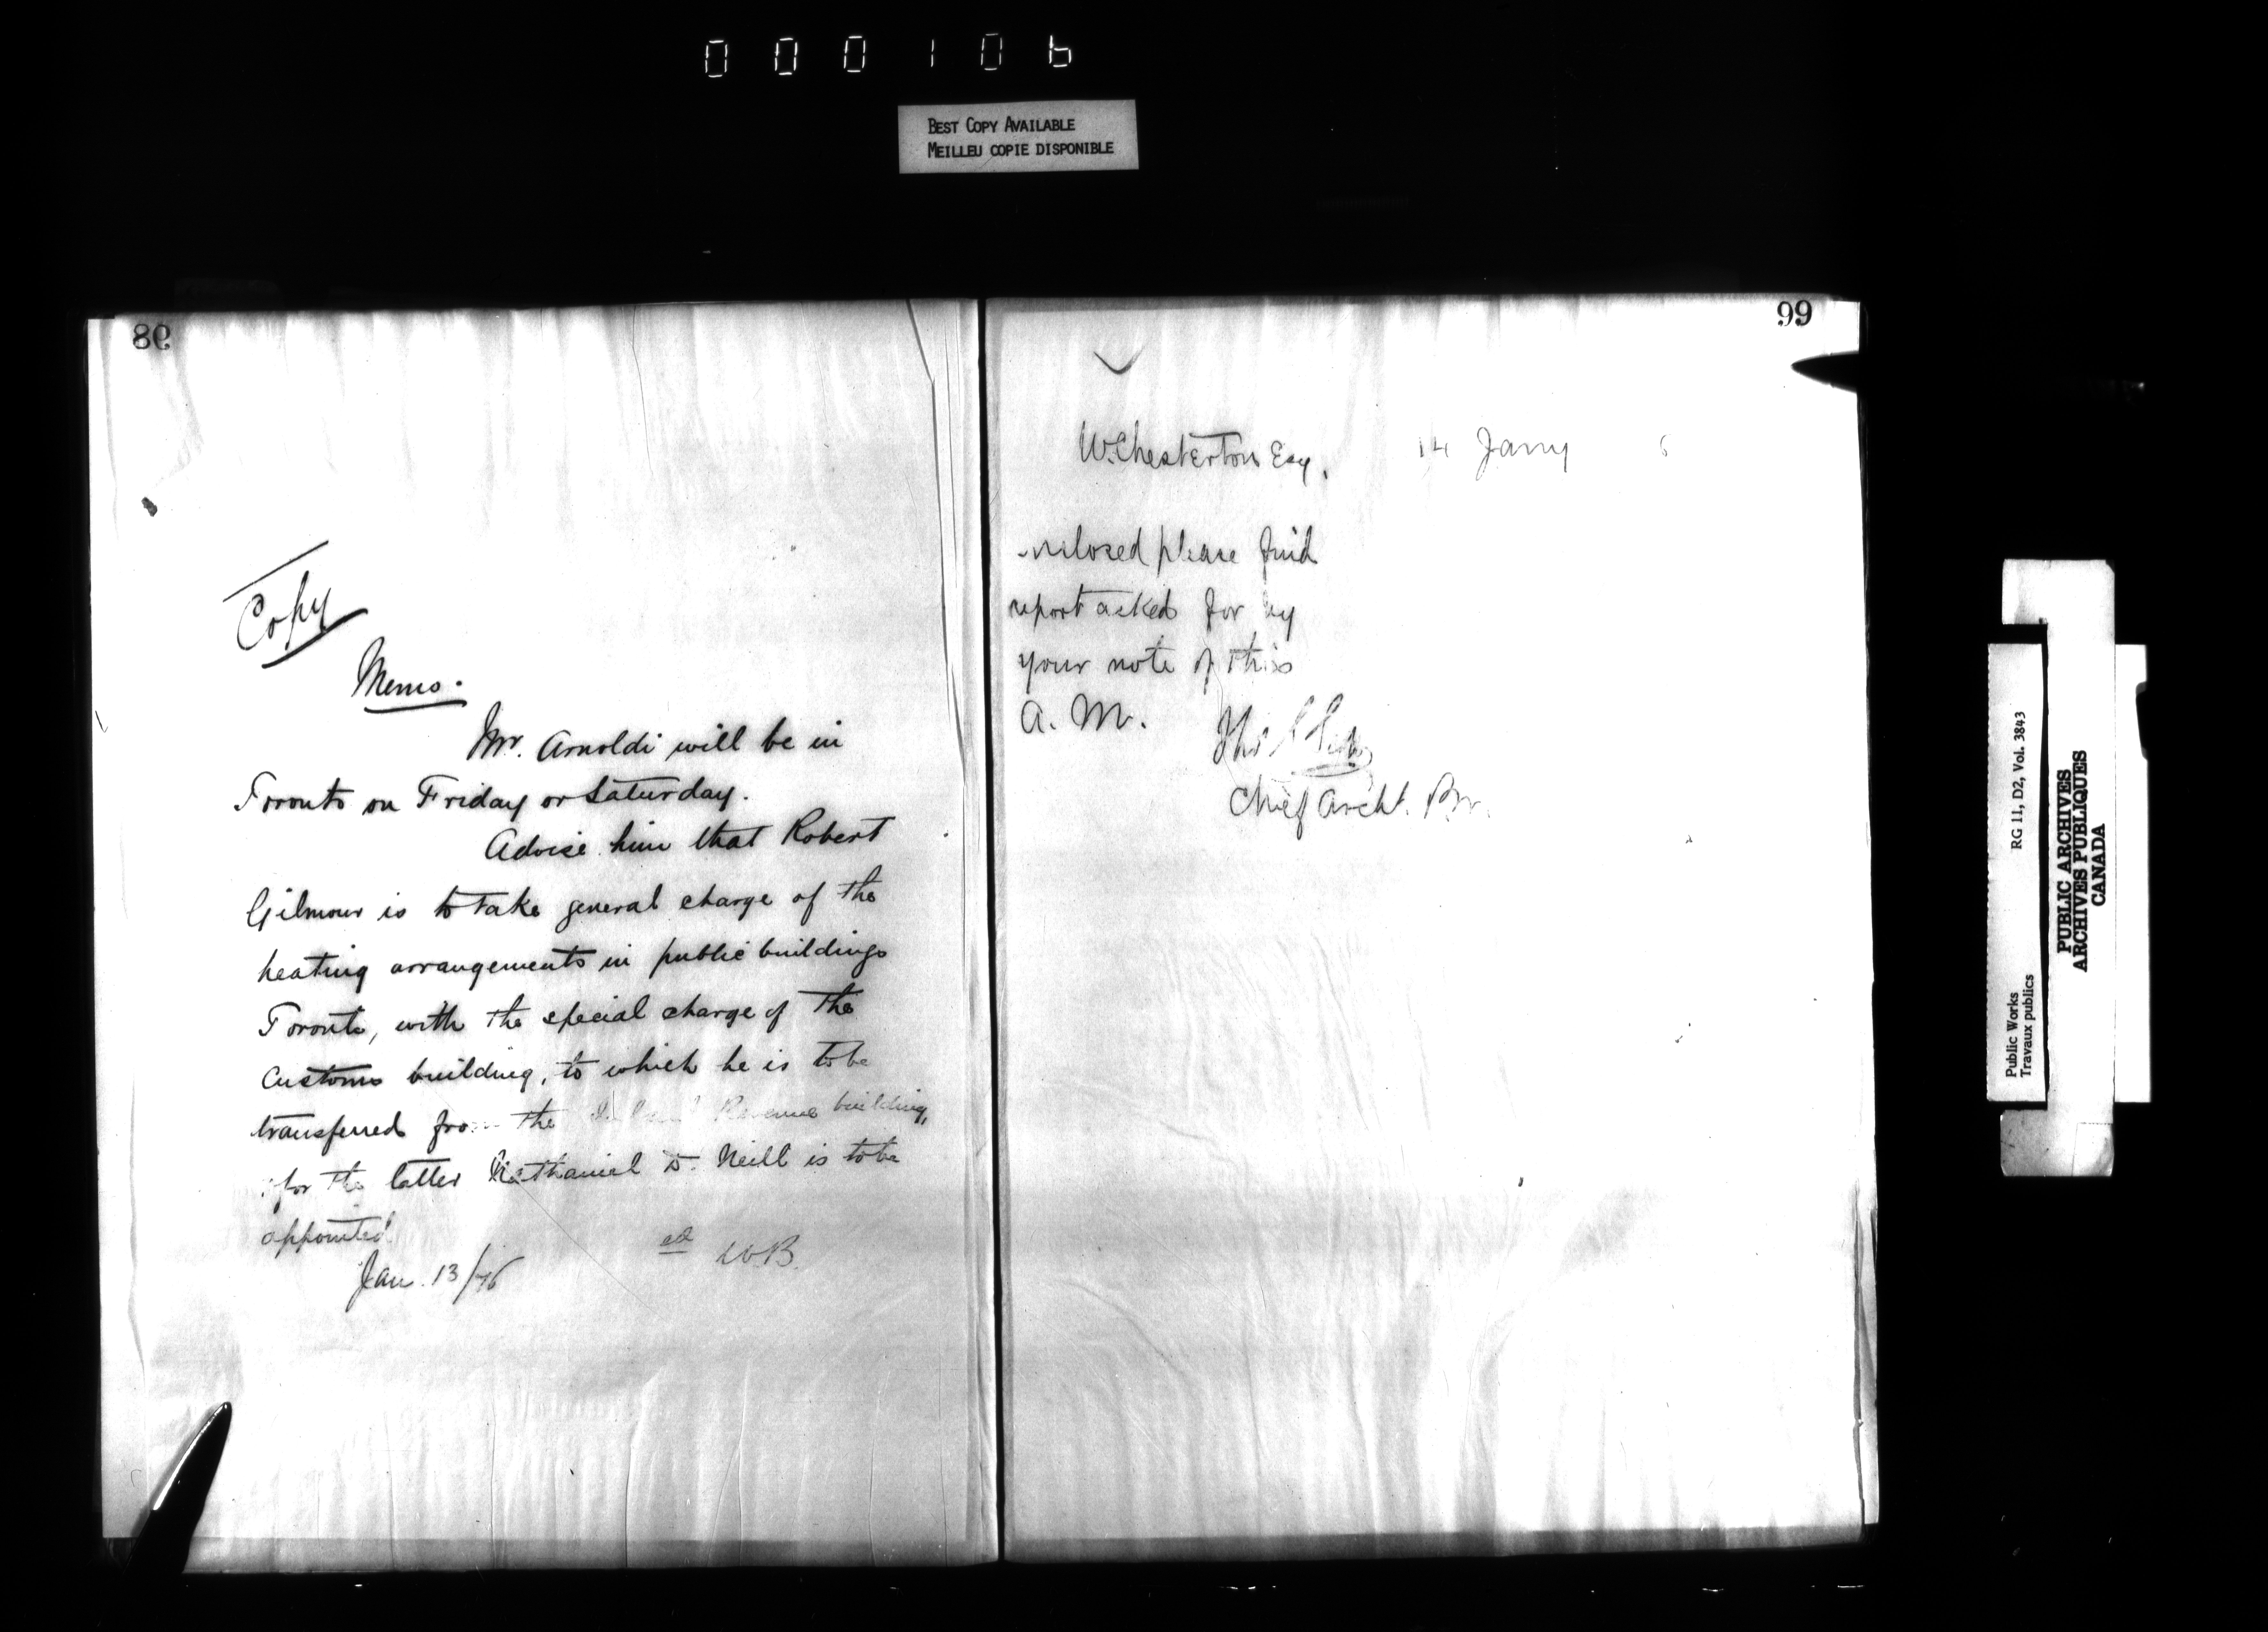 000106
BEST COPY AVAILABLE
MEILLEU COPIE DISPONIBLE
98
Copy
Memo.
Mr. Arnoldi will be in
Toronto on Friday or Saturday.
Advise him that Robert
Gilmour is to take general charge of the
heating arrangements in public buildings
Toronto, with the special charge of the
Customs building, to which he is to be
transferred from the Inland Revenue building,
for the latter Nathaniel D. Neill is to be
appointed
Jan. 13/76
W.B.
99
W. Chesterton Esq. 14 Jany 6
nclosed please find
report asked for by
your note of this
A. M.
Chief Archt. Br.
Public Works
Travaux publics
RG 11, D2, Vol. 3843
PUBLIC ARCHIVES
ARCHIVES PUBLIQUES
CANADA